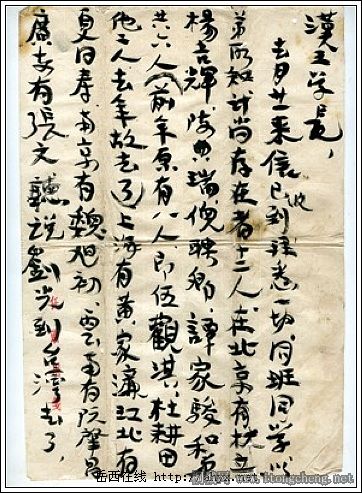 漢五学長，
去月廿一来信已收到，详悉一切，同班同学以
弟所知计尚存在者十二人，在北京有林立
楊吉輝、陸典瑞、倪聘卿、譚家駿和弟
共六人（前年原有八人，即伍觀淇、杜耕田
他二人去年故去了）上海有黄家濂，江北有
夏日寿，南京有魏旭初，雲南有阮肇昌
廣安有張文，聽说劉光到台湾去了，
岳西在线 http://